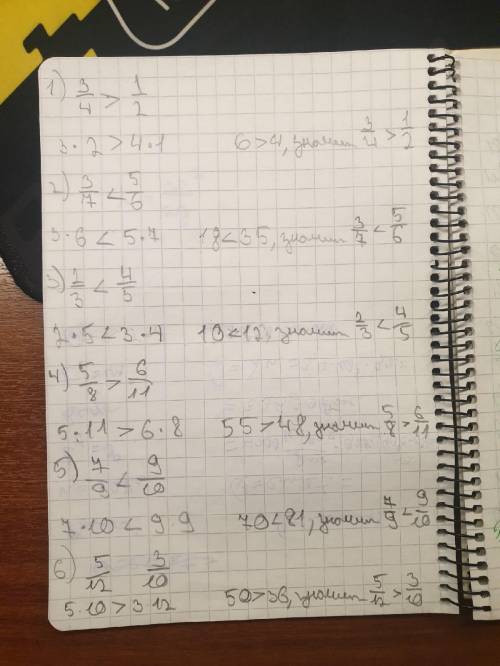 1) 3/4 > 1/2
3·2 > 4·1 6>4, значит 3/4 > 1/2
2) 3/7 < 5/6
3·6 < 5·7 18<35, значит 3/7 < 5/6
3) 2/3 < 4/5
2·5 < 3·4 10<12, значит 2/3 < 4/5
4) 5/8 > 6/11
5·11 > 6·8 55>48, значит 5/8 > 6/11
5) 7/9 < 9/10
7·10 < 9 9 70<81, значит 7/9 < 9/10
6) 5/12 3/10
5·10 > 3 12 50>36, значит 5/12 > 3/10